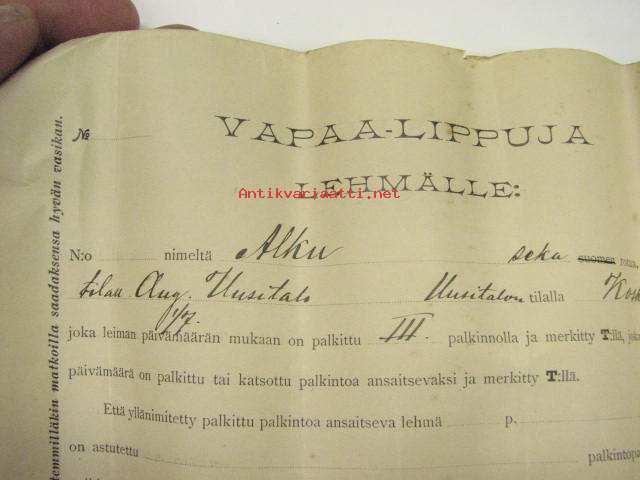 №
VAPAA-LIPPUJA
LEHMÄLLE:
Antikvariaatti.net
N:o nimeltä Alku seka suomen rotua,
tilall Aug. Uusitalo Uusitalon tilalla Kosk
1/7.
joka leiman päivämäärän mukaan on palkittu III. palkinnolla ja merkitty T:llä, jok
päivämäärä on palkittu tai katsottu palkintoa ansaitsevaksi ja merkitty T:llä.
Että yllänimitetty palkittu palkintoa ansaitseva lehmä p.
on astutettu palkintopa
temmilläkin matkoilla saadaksensa hyvän vasikan.